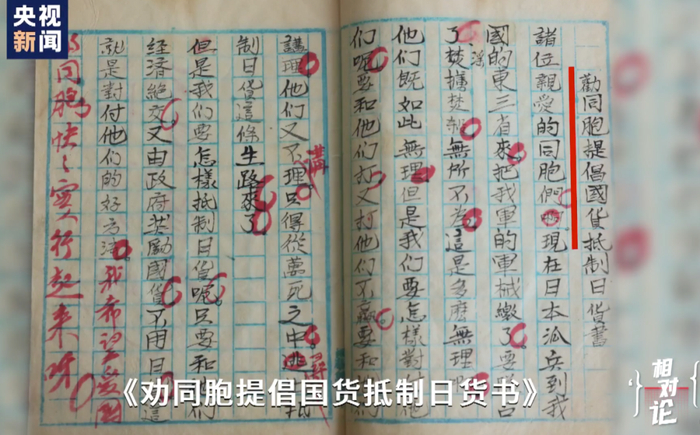 央视新闻
勸同胞提倡國貨抵制日貨書
諸位親愛的同胞們現在日本派兵到我
國的東三省來把我軍的軍械繳了要占
了焚擄無所不為這是多麼無理
他們既如此無理但是我們要怎樣對付他
們呢要和他們打又打他們不贏要和他們
講理他們又不理只得從萬死之中抵
制日貨這條生路來了
但是我們要怎樣抵制日貨呢只要和他們
經濟絕交又由政府獎勵國貨不用日貨這
就是對付他們的好方法我希望愛國
的同胞快々實行起來呀
《劝同胞提倡国货抵制日货书》
相对论